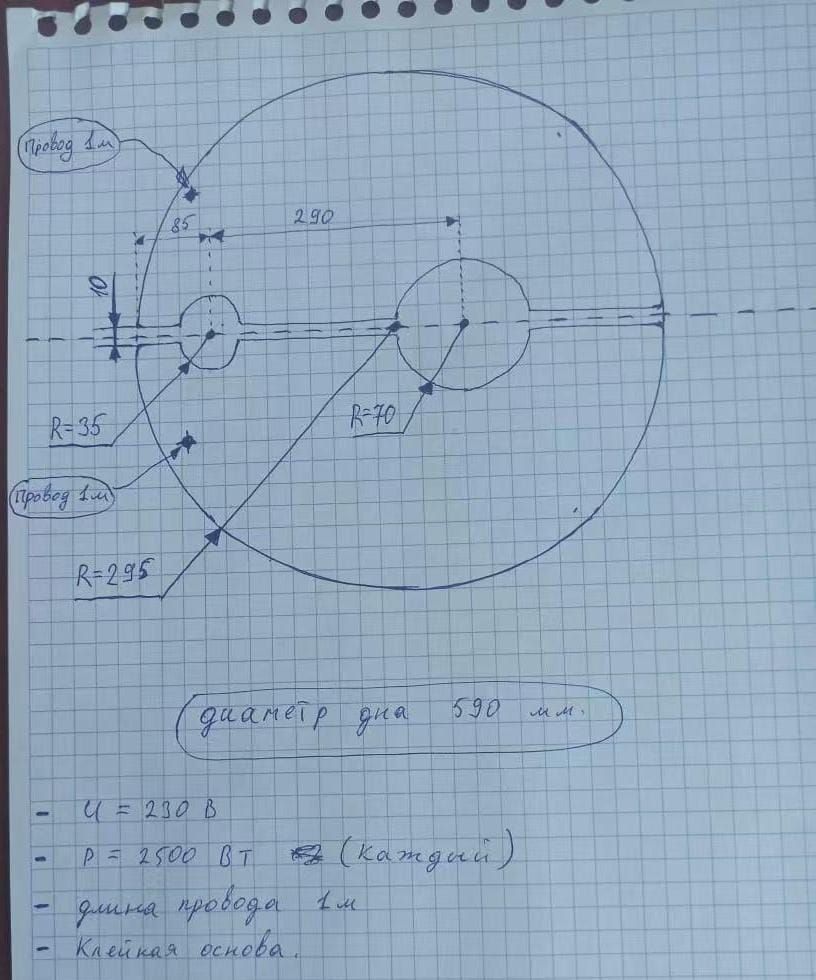 Провод 1м
85
290
10
R=35
R=70
Провод 1м
R=295
диаметр дна 590 мм.
- U = 230 В
- P = 2500 Вт (каждый)
- длина провода 1м
- Клейкая основа.